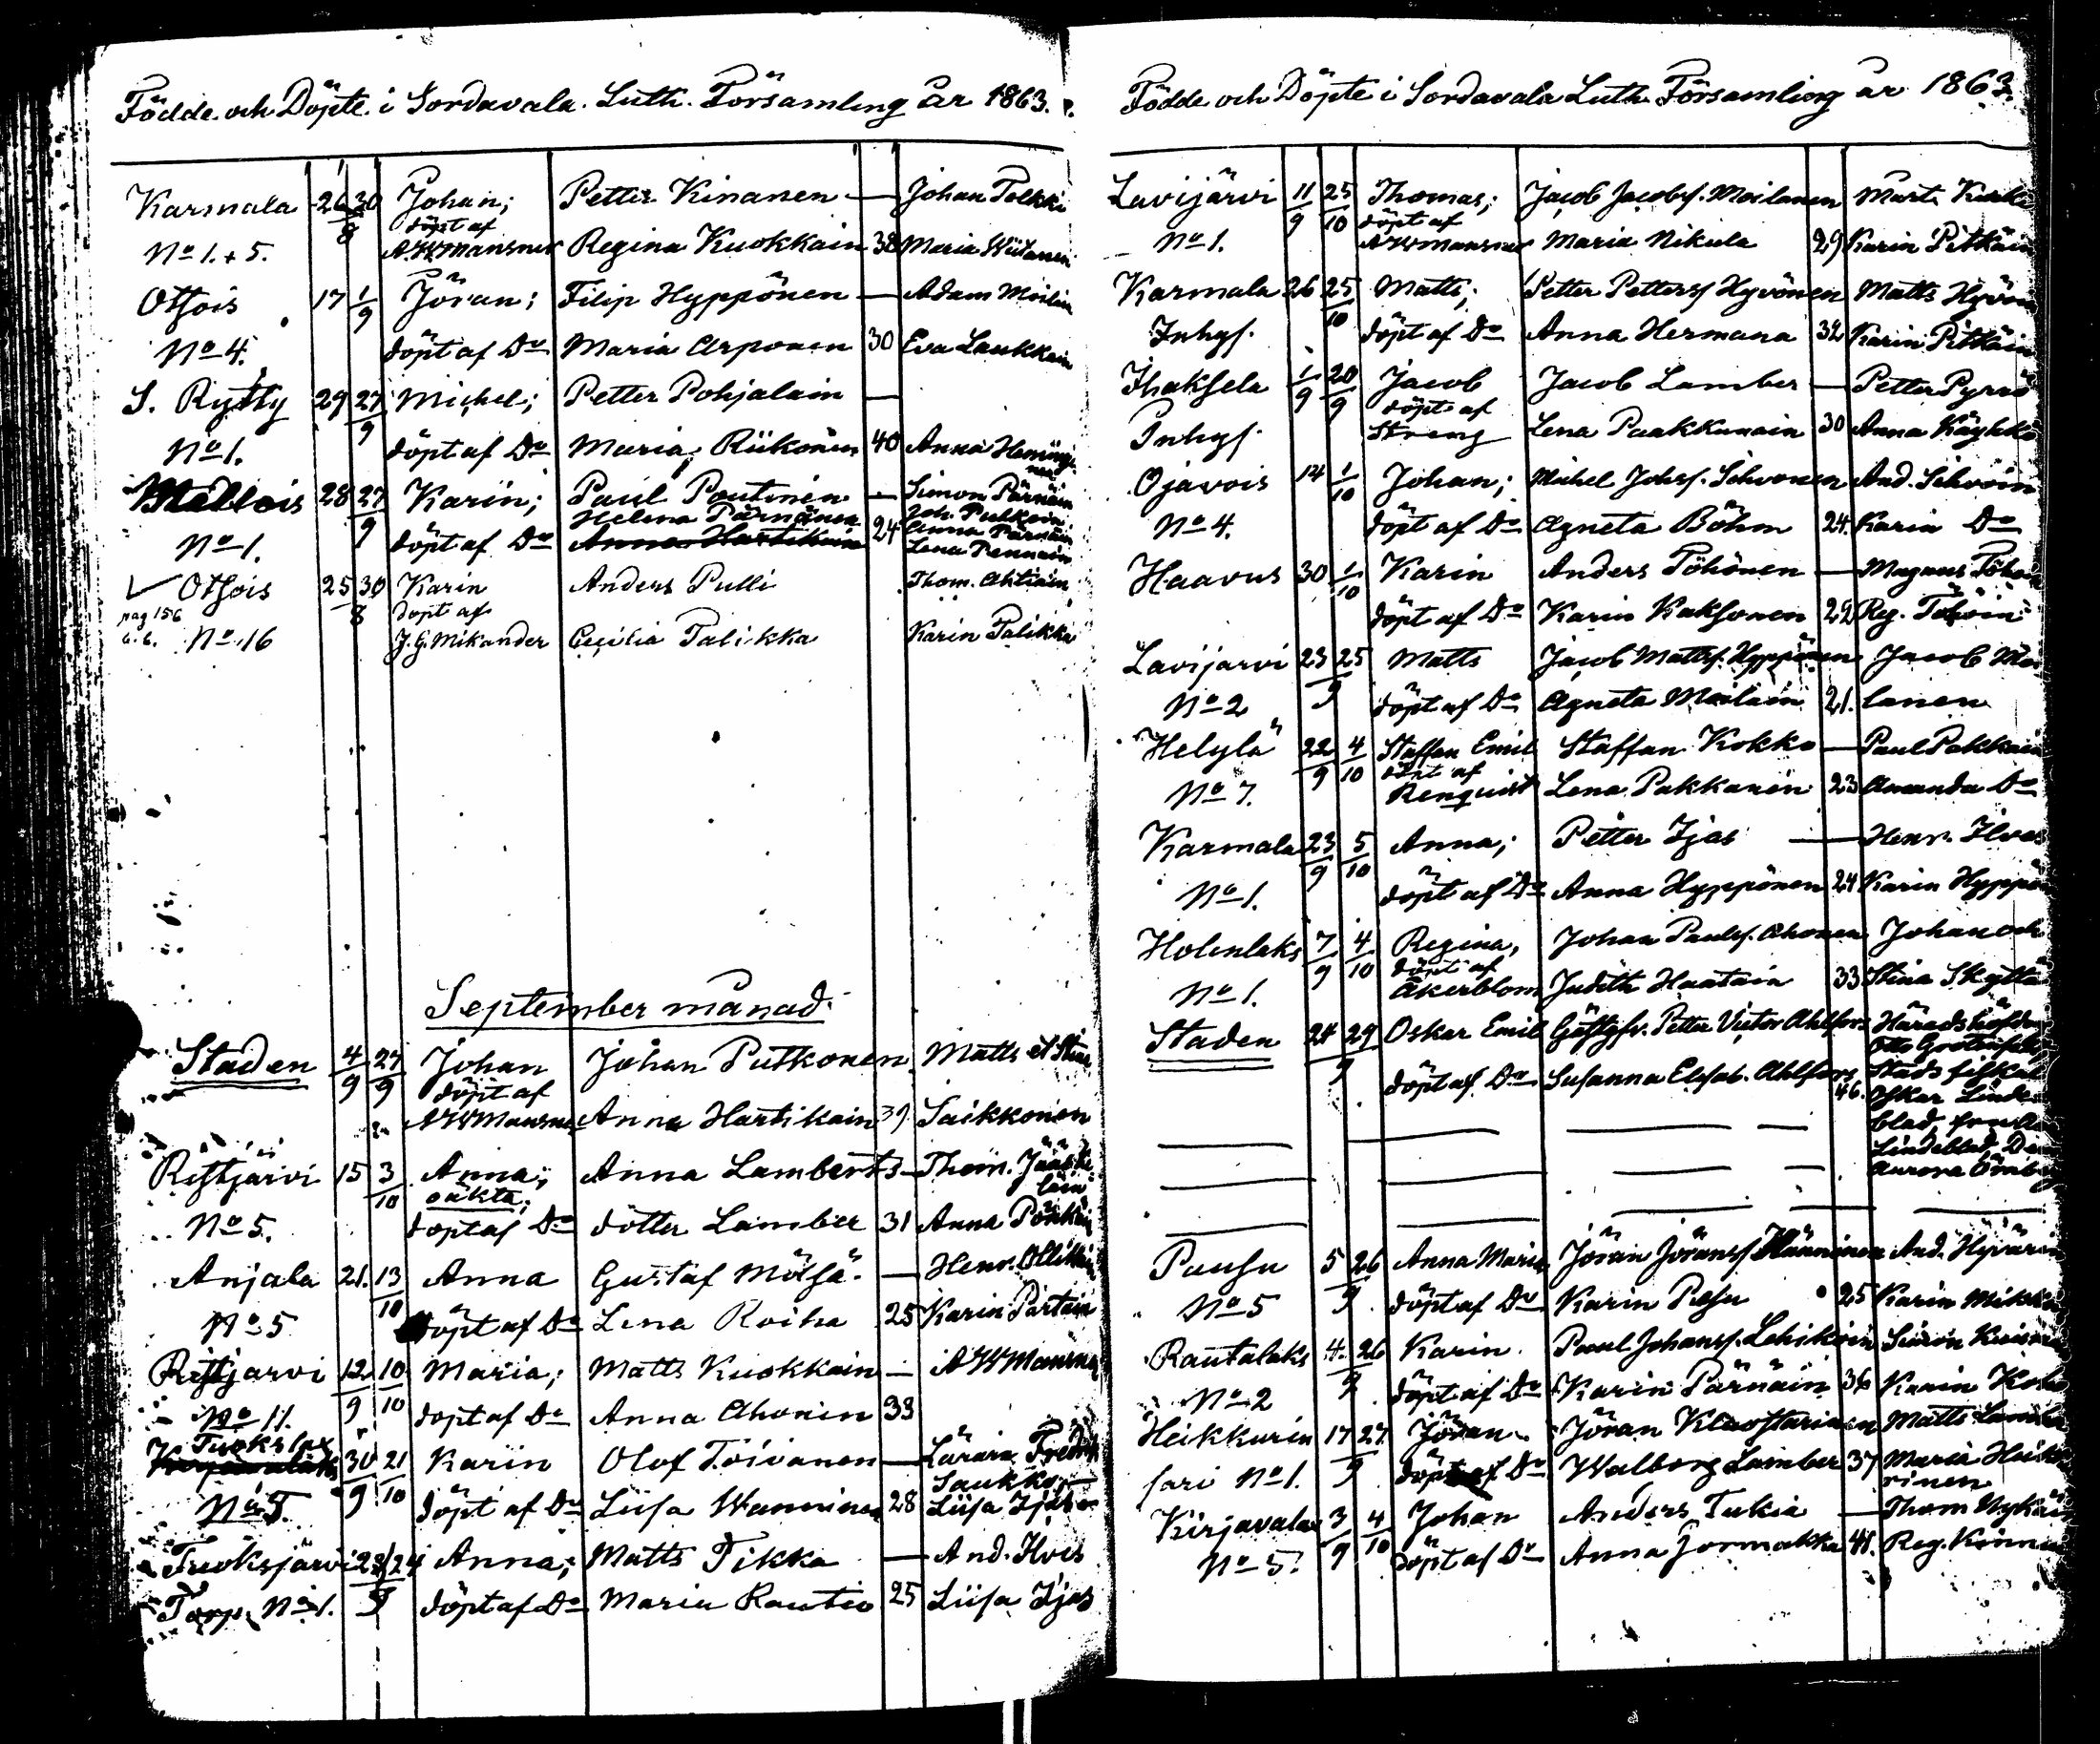 Födde och Döpte i Sordavala Luth. Församling år 1863.
Karmala 26 30 Johan; Petter Kinanen — Johan Polkki
8 döpt af
No 1. + 5. A.W. Mansner Regina Kuokkain 38 Maria Wiitanen
Otsois 17 1 Jöran; Filip Hyppönen — Adam
9
No 4. döpt af Do Maria Arponen 30 Eva Laukkain
S. Rytty 29 27 Michel; Petter Pohjalain —
9
No 1. döpt af Do Maria Riikonen 40 Anna
28 27 Karin; Paul Poutinen — Simon Pärnäin
9 Helena Pärnänen Joh.
No 1. döpt af Do Anna Hartikain 24 Anna Pärnäin
Lena
Otsois 25 30 Karin Anders Pulli Thom. Ahtiain
pag 156 8 döpt af
No 16 J.G. Mikander Cecilia Palikka Karin Palikka
September månad.
Staden 4 27 Johan Johan Putkonen Matts et Stina
9 9 döpt af
A W Mansner Anna Hartikain 39 Saikkonen
Ristjärvi 15 3 Anna; Anna Lamberts — Thom. Jääske
10 oäkta; läin
No 5. döpt af Do dotter Lamber 31 Anna
Anjala 21. 13 Anna Gustaf Mölsä — Henr. Ollikain
10
No 5 döpt af Do Lena Roiha 25 Karin Partain
Ristjarvi 12 10 Maria; Matts Kuokkain — A W Mansner
9 10
No 11. döpt af Do Anna Ahonin 33
Tuokslax
30 21 Karin Olof Toivanen — Fredrik
9 10 Saukko
No 5. döpt af Do Liisa Wanninen 28 Liisa Ijäs
Tuoksjärvi 28 24 Anna; Matts Tikka — And. Ilves
9
Torp. No 1. döpt af Do Maria Rautio 25 Liisa Ijas
Födde och Döpte i Sordavala Luth. Församling år 1863.
Lavijärvi 11 25 Thomas; Jacob Jacobs. Moilanen Mart.
9 10 döpt af
No 1. A W Mansner Maria Nikula 29 Karin Pitkäin
Karmala 26 25 Matts; Petter Petters. Hyvönen Matts Hyvön
10
Inhys. döpt af Do Anna Hermana 32 Karin Pitkäin
Ihaksela 1 20 Jacob Jacob Lamber — Petter Pyrrö
9 9 döpt af
Inhys. Streng Lena Paakkunain 30 Anna Käyhkö
Ojavois 14 1 Johan; Michel Johs. Sihvonen And. Sihvoin
10
No 4. döpt af Do Agneta Böhm 24. Karin Do
Haavus 30 1 Karin Anders Töhönen — Magnus Töhöin
10
döpt af Do Karin Kaksonen 22 Reg. Töhöin
Lavijarvi 23 25 Matts Jacob Matts. Hyppönen Jacob Moi
9
No 2 döpt af Do Agneta Moilain 21. lanen
Helylä 22 4 Staffan Emil Staffan Kokko — Paul Pakkain
9 10 döpt af
No 7. Renquist Lena Pakkanen 23 Amanda Do
Karmala 23 5 Anna; Petter Ijas — Henr. Ilves
9 10
No 1. döpt af Do Anna Hyppönen 24 Karin Hyppön
Holenlaks 7 4 Regina, Johan Pauls. Ahonen Johan och
9 10 döpt af
No 1. Åkerblom Judith Haatain 33 Stina Skyttä
Staden 24 29 Oskar Emil Gästgfv. Petter Victor Ahlfors Häradshöfd
9 Otto Grotenfelt
döpt af Do Susanna Elisab. Ahlfors 46. Stads fiskal
Oskar Linde
blad,
Lindeblad,
Aurora
Pausu 5 26 Anna Maria Jöran Jörans. Hänninen And. Hyvärin
9
No 5 döpt af Do Karin Pesu 25 Karin Mikka
Rautalaks 4. 26 Karin. Paul Johans. Lehikoin Simon
9
No 2 döpt af Do Karin Pärnäin 36 Karin
Heikkurin 17 27 Jöran Jöran Matts Lamber
9
sari No 1. döpt af Do Walborg Lamber 37 Maria Heikku
rinen
Kirjavalax 3 4 Johan Anders Tukia — Thom Nykäin
9 10
No 5. döpt af Do Anna Jormakka 41. Reg. Kinnu